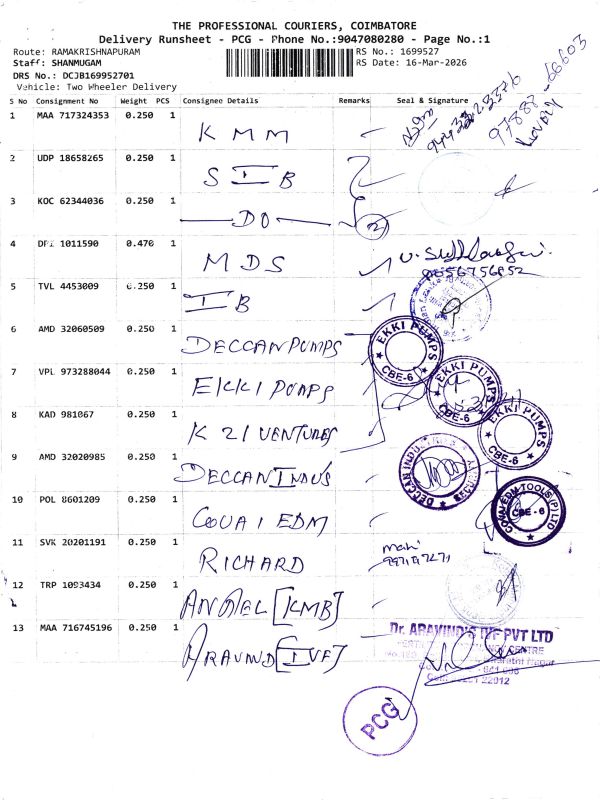 THE PROFESSIONAL COURIERS, COIMBATORE
Delivery Runsheet - PCG - Phone No.:9047080280 - Page No.:1
Route: RAMAKRISHNAPURAM RS No.: 1699527
Staff: SHANMUGAM RS Date: 16-Mar-2026
DRS No.: DCJB169952701
Vehicle: Two Wheeler Delivery
S No Consignment No Weight PCS Consignee Details Remarks Seal & Signature
1 MAA 717324353 0.250 1 KMM
2 UDP 18658265 0.250 1 SIB
3 KOC 62344036 0.250 1 DO 2
4 1011590 0.470 1 MDS
5 TVL 4453009 0.250 1 IB
6 AMD 32060509 0.250 1 DECCAN PUMPS
EKKI PUMPS CBE-6
7 VPL 973288044 0.250 1 EKKI PUMPS
EKKI PUMPS CBE-6
8 KAD 981067 0.250 1 K 21 VENTURES
EKKI PUMPS CBE-6
9 AMD 32020985 0.250 1 DECCAN INDUS
DECCAN INDUSTRIES
10 POL 8601209 0.250 1 COVAI EDM
COVAI EDM TOOLS (P) LTD CBE-6
11 SVK 20201191 0.250 1 RICHARD
12 TRP 1093434 0.250 1 [KMB]
13 MAA 716745196 0.250 1 ARAVIND [IVF]
Dr. ARAVIND'S IVF PVT LTD
CENTRE
PCG